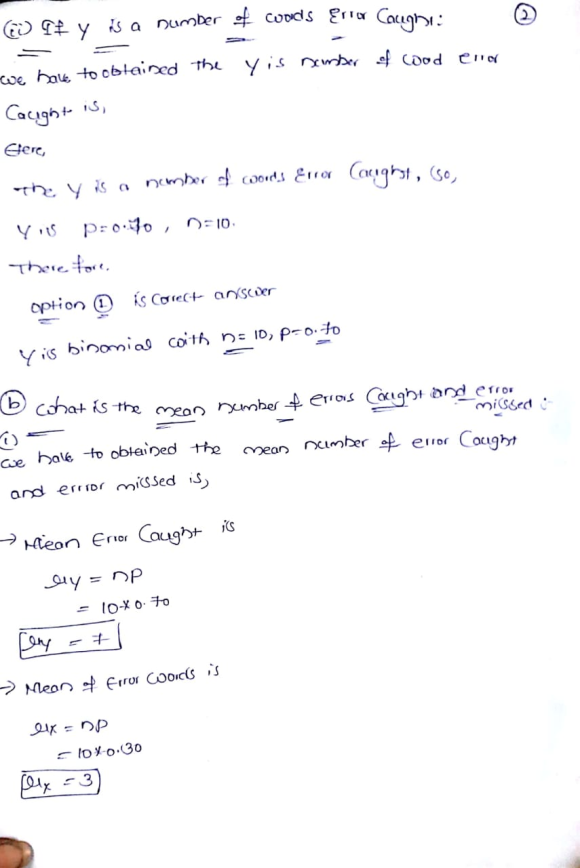 (ii) If y is a number of words Error Caught: ②
we have to obtained the y is number of word error
Caught is,
Here,
The y is a number of words Error Caught, so,
y is p=0.70, n=10.
Therefore.
option ① is correct answer
y is binomial with n=10, p=0.70
ⓑ what is the mean number of errors Caught and error missed:
(i)
we have to obtained the mean number of error Caught
and errror missed is,
→ Mean Error Caught is
μy = np
= 10×0.70
μy = 7
→ Mean of Error words is
μx = np
= 10×0.30
μx = 3